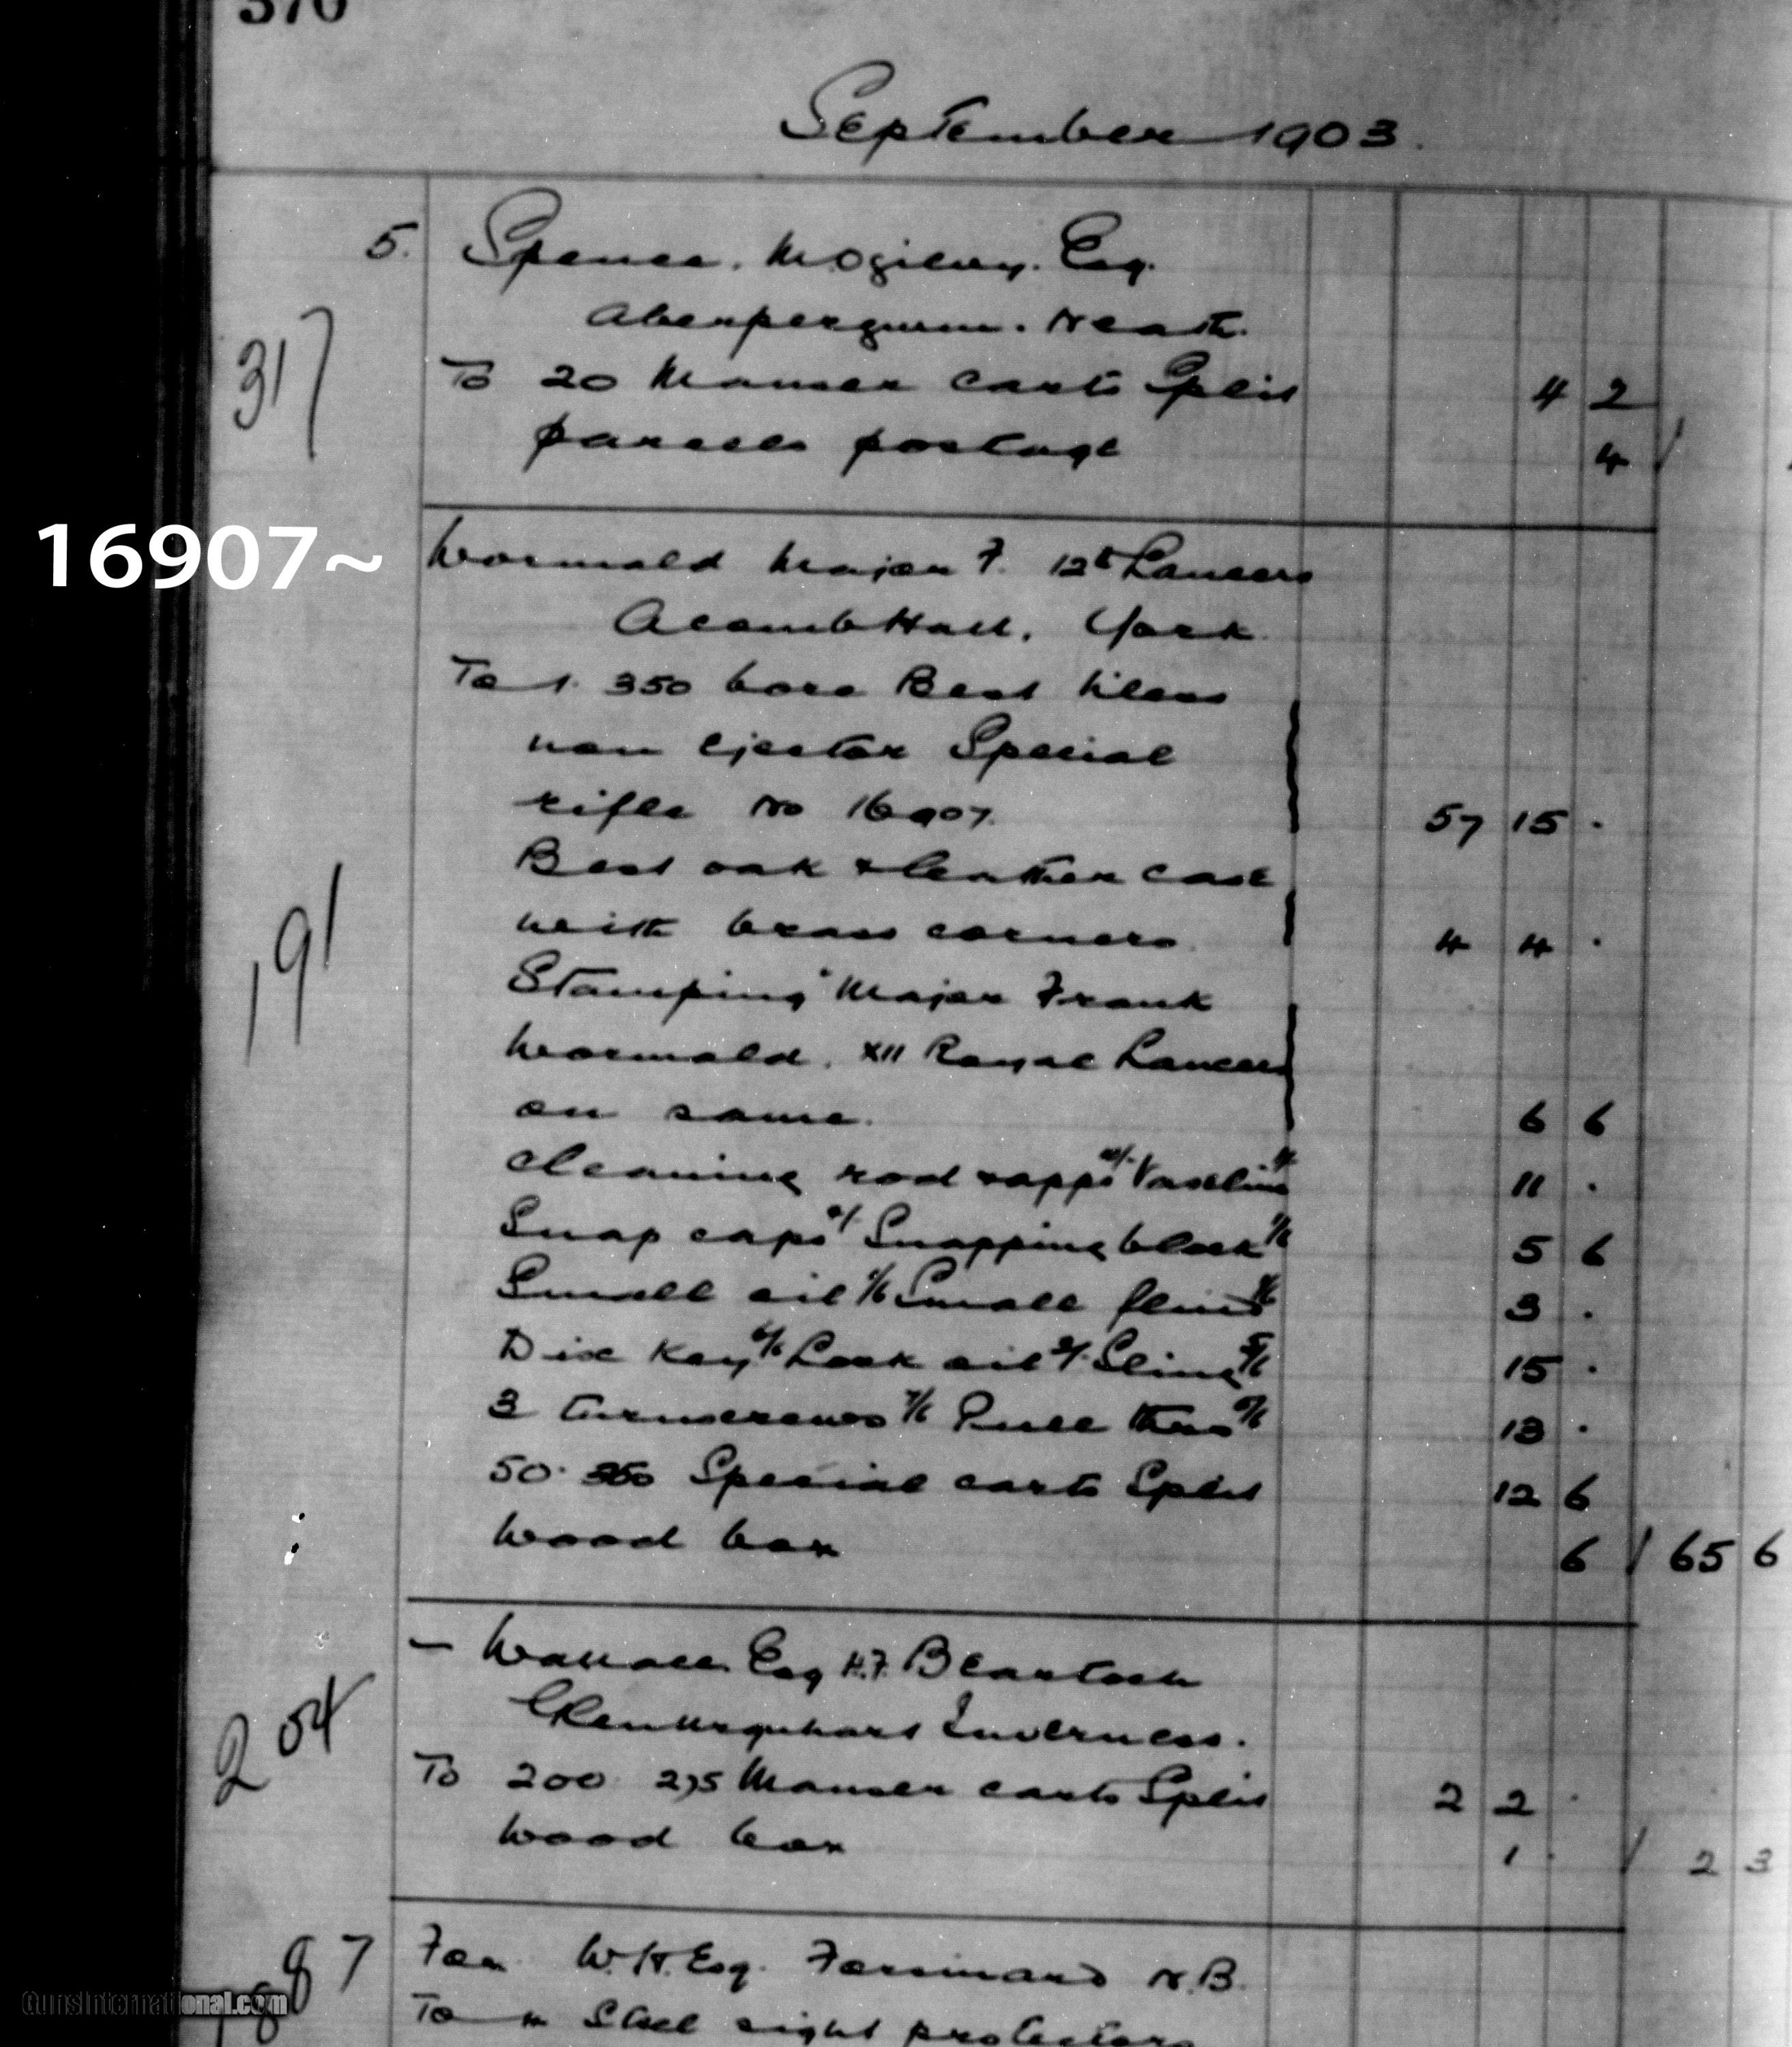 370
September 1903.
5. Spence. M. Ogilvy. Esq.
Aberpergwm. Neath.
317
To 20 Mauser carts Split 4 2
parcels postage 4
16907~
Wormald Major F. 12th Lancers
Acomb Hall, York
To 1. 350 bore Best
non ejector Special
rifle No 16907. 57 15 .
Best oak & leather case
with brass corners 4 4 .
191
Stamping "Major Frank
Wormald. XII Royal Lancers
on same. 6 6
Cleaning rod & apps 10/- Vaseline 1/- 11 .
Snap caps 4/- Snapping block 1/6 5 6
Small oil 1/6 Small 1/6 3 .
Disc Key Lock oil Sling 15 .
3 turnscrews 7/6 Pull thro 5/6 13 .
50 . 350 Special carts Split 12 6
Wood box 6 / 65 6
— Wallace Esq H.F. Beartoch
Glenurquhart Inverness.
204
To 200 275 Mauser carts Split 2 2 .
Wood box 1 . / 2 3
87 Fox W.H. Esq. Forsinard N.B.
To Steel sight protectors
GunsInternational.com